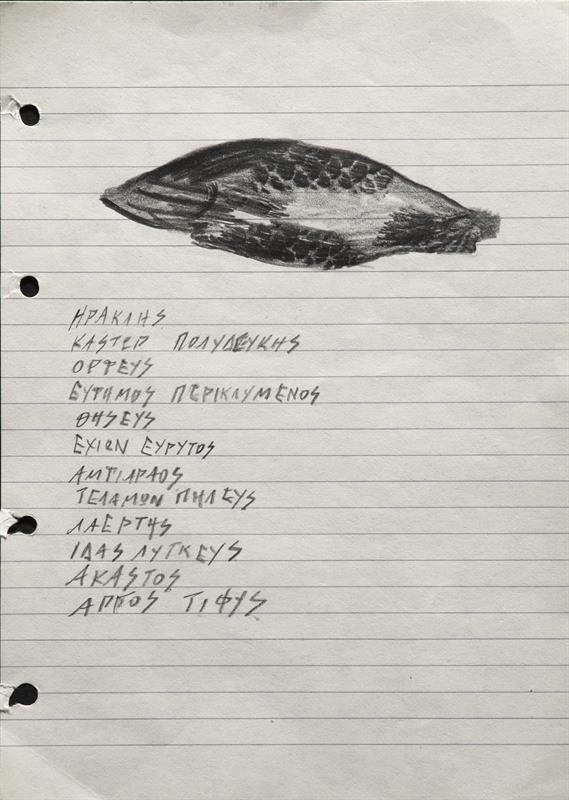 ΗΡΑΚΛΗS
ΚΑSΤΕΡ ΠΟΛΥΔΕΥΚΗS
ΟΡΤΕΥS
ΕΥΤΗΜΟS ΠΕΡΙΚΛΥΜΕΝΟS
ΘΗSΕΥS
ΕΧΙΩΝ ΕΥΡΥΤΟS
ΑΜΤΙΑΡΑΟS
ΤΕΛΑΜΩΝ ΠΗΛΕΥS
ΛΑΕΡΤΗS
ΙΔΑS ΛΥΓΚΕΥS
ΑΚΑSΤΟS
ΑΡΓΟS ΤΙΦΥS